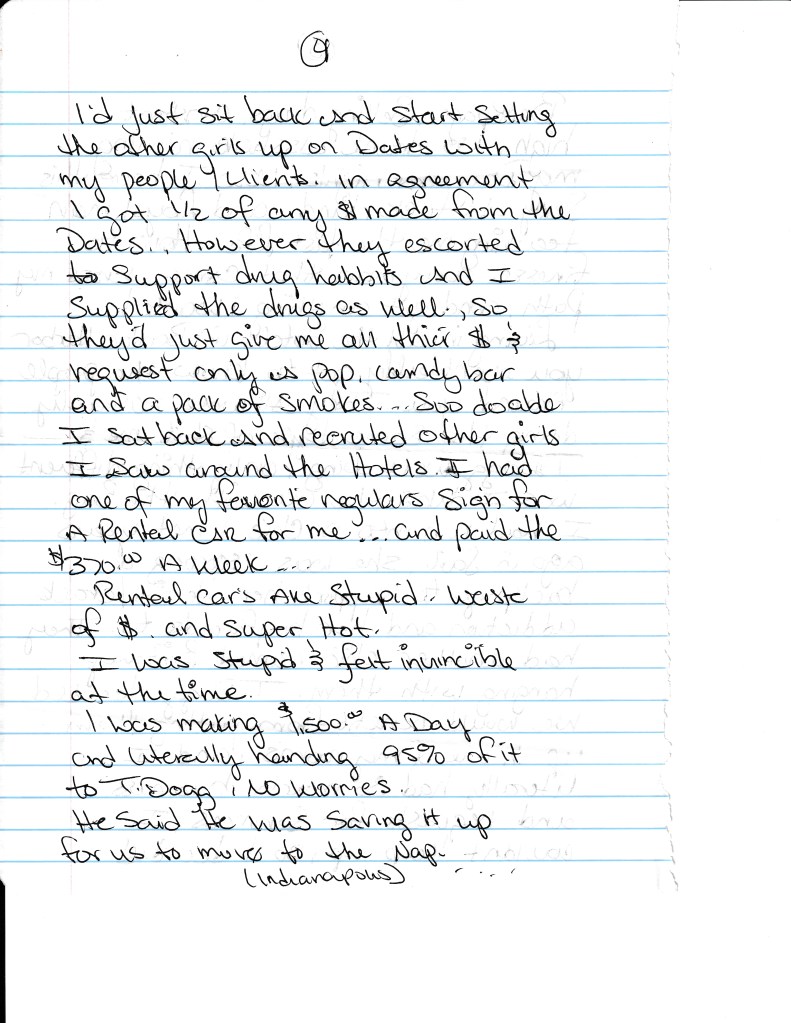 4
I'd just sit back and start setting
the other girls up on Dates with
my people / clients. in agreement
I got 1/2 of any $ made from the
Dates.. However they escorted
to support drug habbits and I
supplied the drugs as well., so
they'd just give me all thier $ &
request only a pop, candy bar
and a pack of smokes.... Soo doable
I sat back and recruited other girls
I saw around the Hotels. I had
one of my favorite regulars sign for
A Rental car for me... and paid the
$370.00 A week ...
Rental cars Are Stupid.. waste
of $. and super Hot.
I was stupid & felt invincible
at the time.
I was making $1,500.00 A Day
and literally handing 95% of it
to T.Dogg, No worries.
He said He was saving it up
for us to move to the Nap.
(Indianapolis) .....